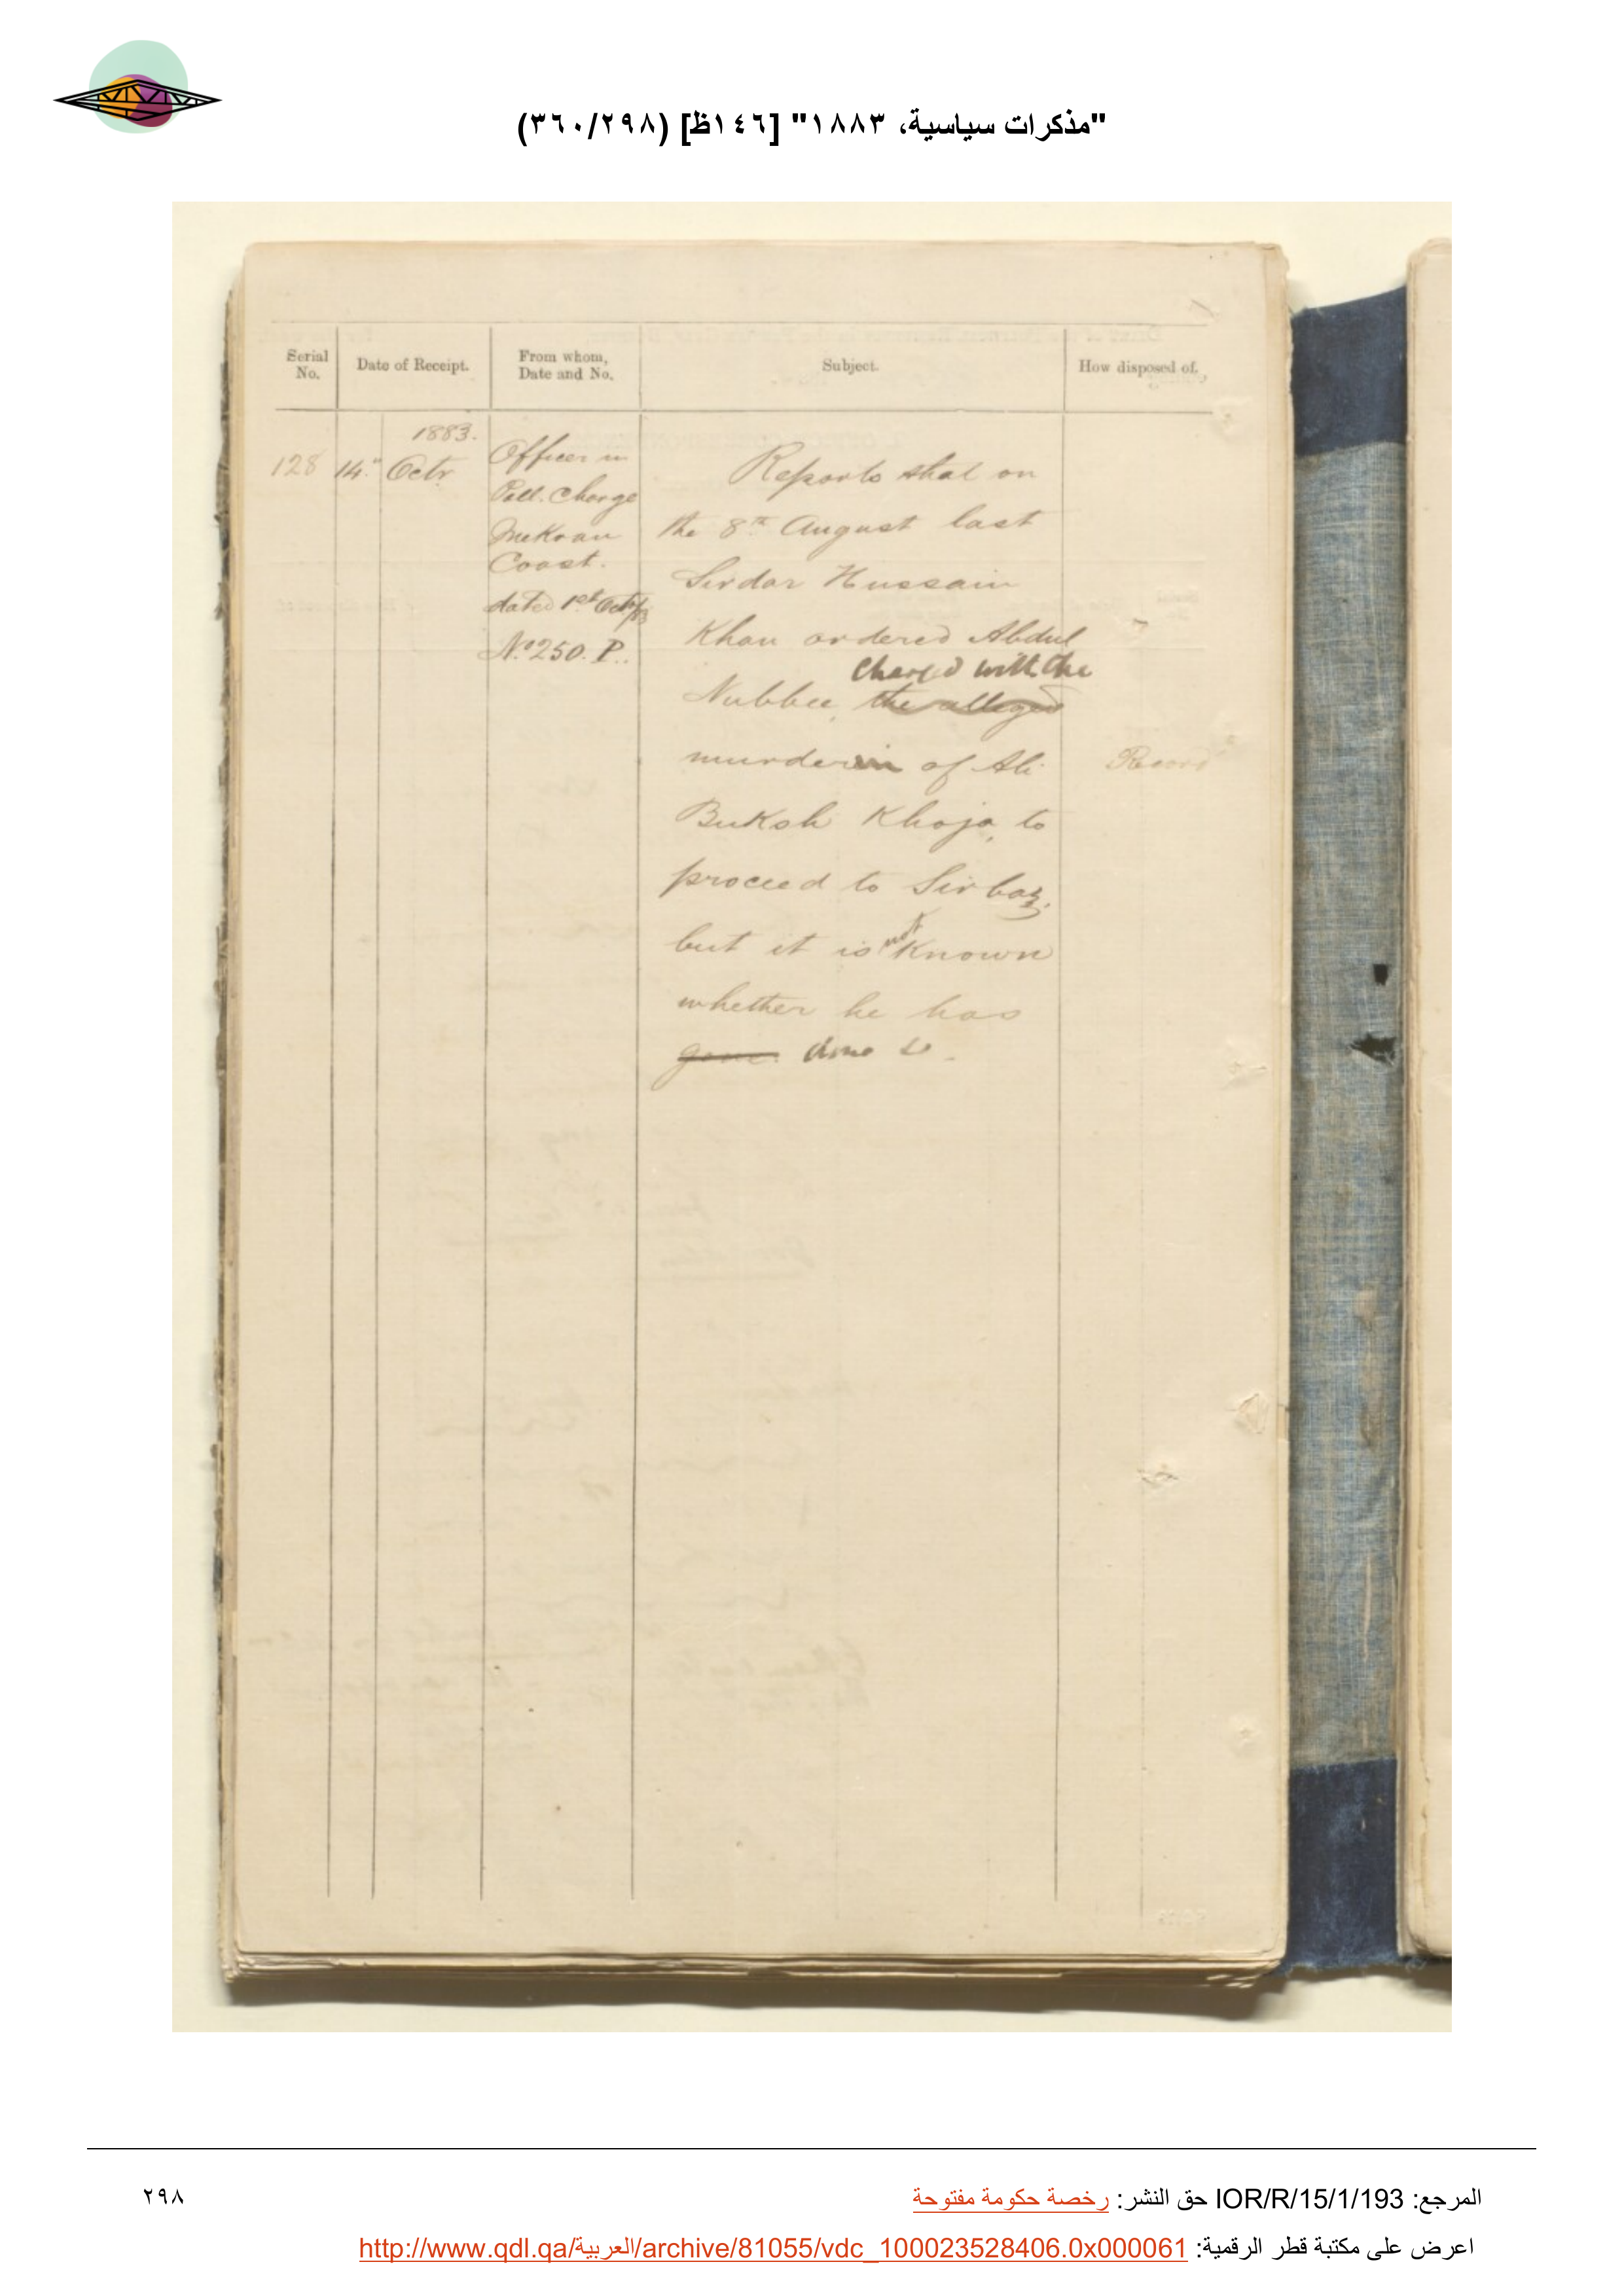 "مذكرات سياسية، ١٨٨٣" [١٤٦ظ] (٣٦٠/٢٩٨)
Serial No.
Date of Receipt.
From whom, Date and No.
Subject.
How disposed of.
1883.
128 14th Octr.
Officer in
Poll. Charge
Mekran
Coast.
dated 1st Octr/83
No. 250. P.
Reports that on
the 8th August last
Sirdar Hussain
Khan ordered Abdul
charged with the
Nubbee, the alleged
murder of Ali
Buksh Khoja, to
proceed to Sirbaz,
but it is not known
whether he has
gone. done so.
Record
المرجع: IOR/R/15/1/193 حق النشر: رخصة حكومة مفتوحة
٢٩٨
اعرض على مكتبة قطر الرقمية: http://www.qdl.qa/العربية/archive/81055/vdc_100023528406.0x000061